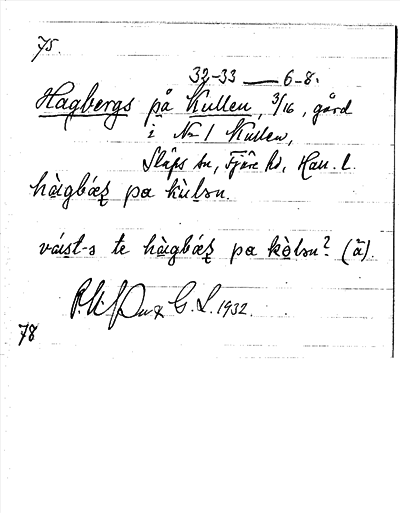 75.
32-33 — 6-8.
Hagbergs på Kullen, 3/16, gård
i No 1 Kullen,
Släps sn, Fjäre hd, Hall. l.
hàgbǽʂ pa kùlən.
váist-ə te hàgbǽʂ pa kòlən? (ä).
G. L. 1932.
78